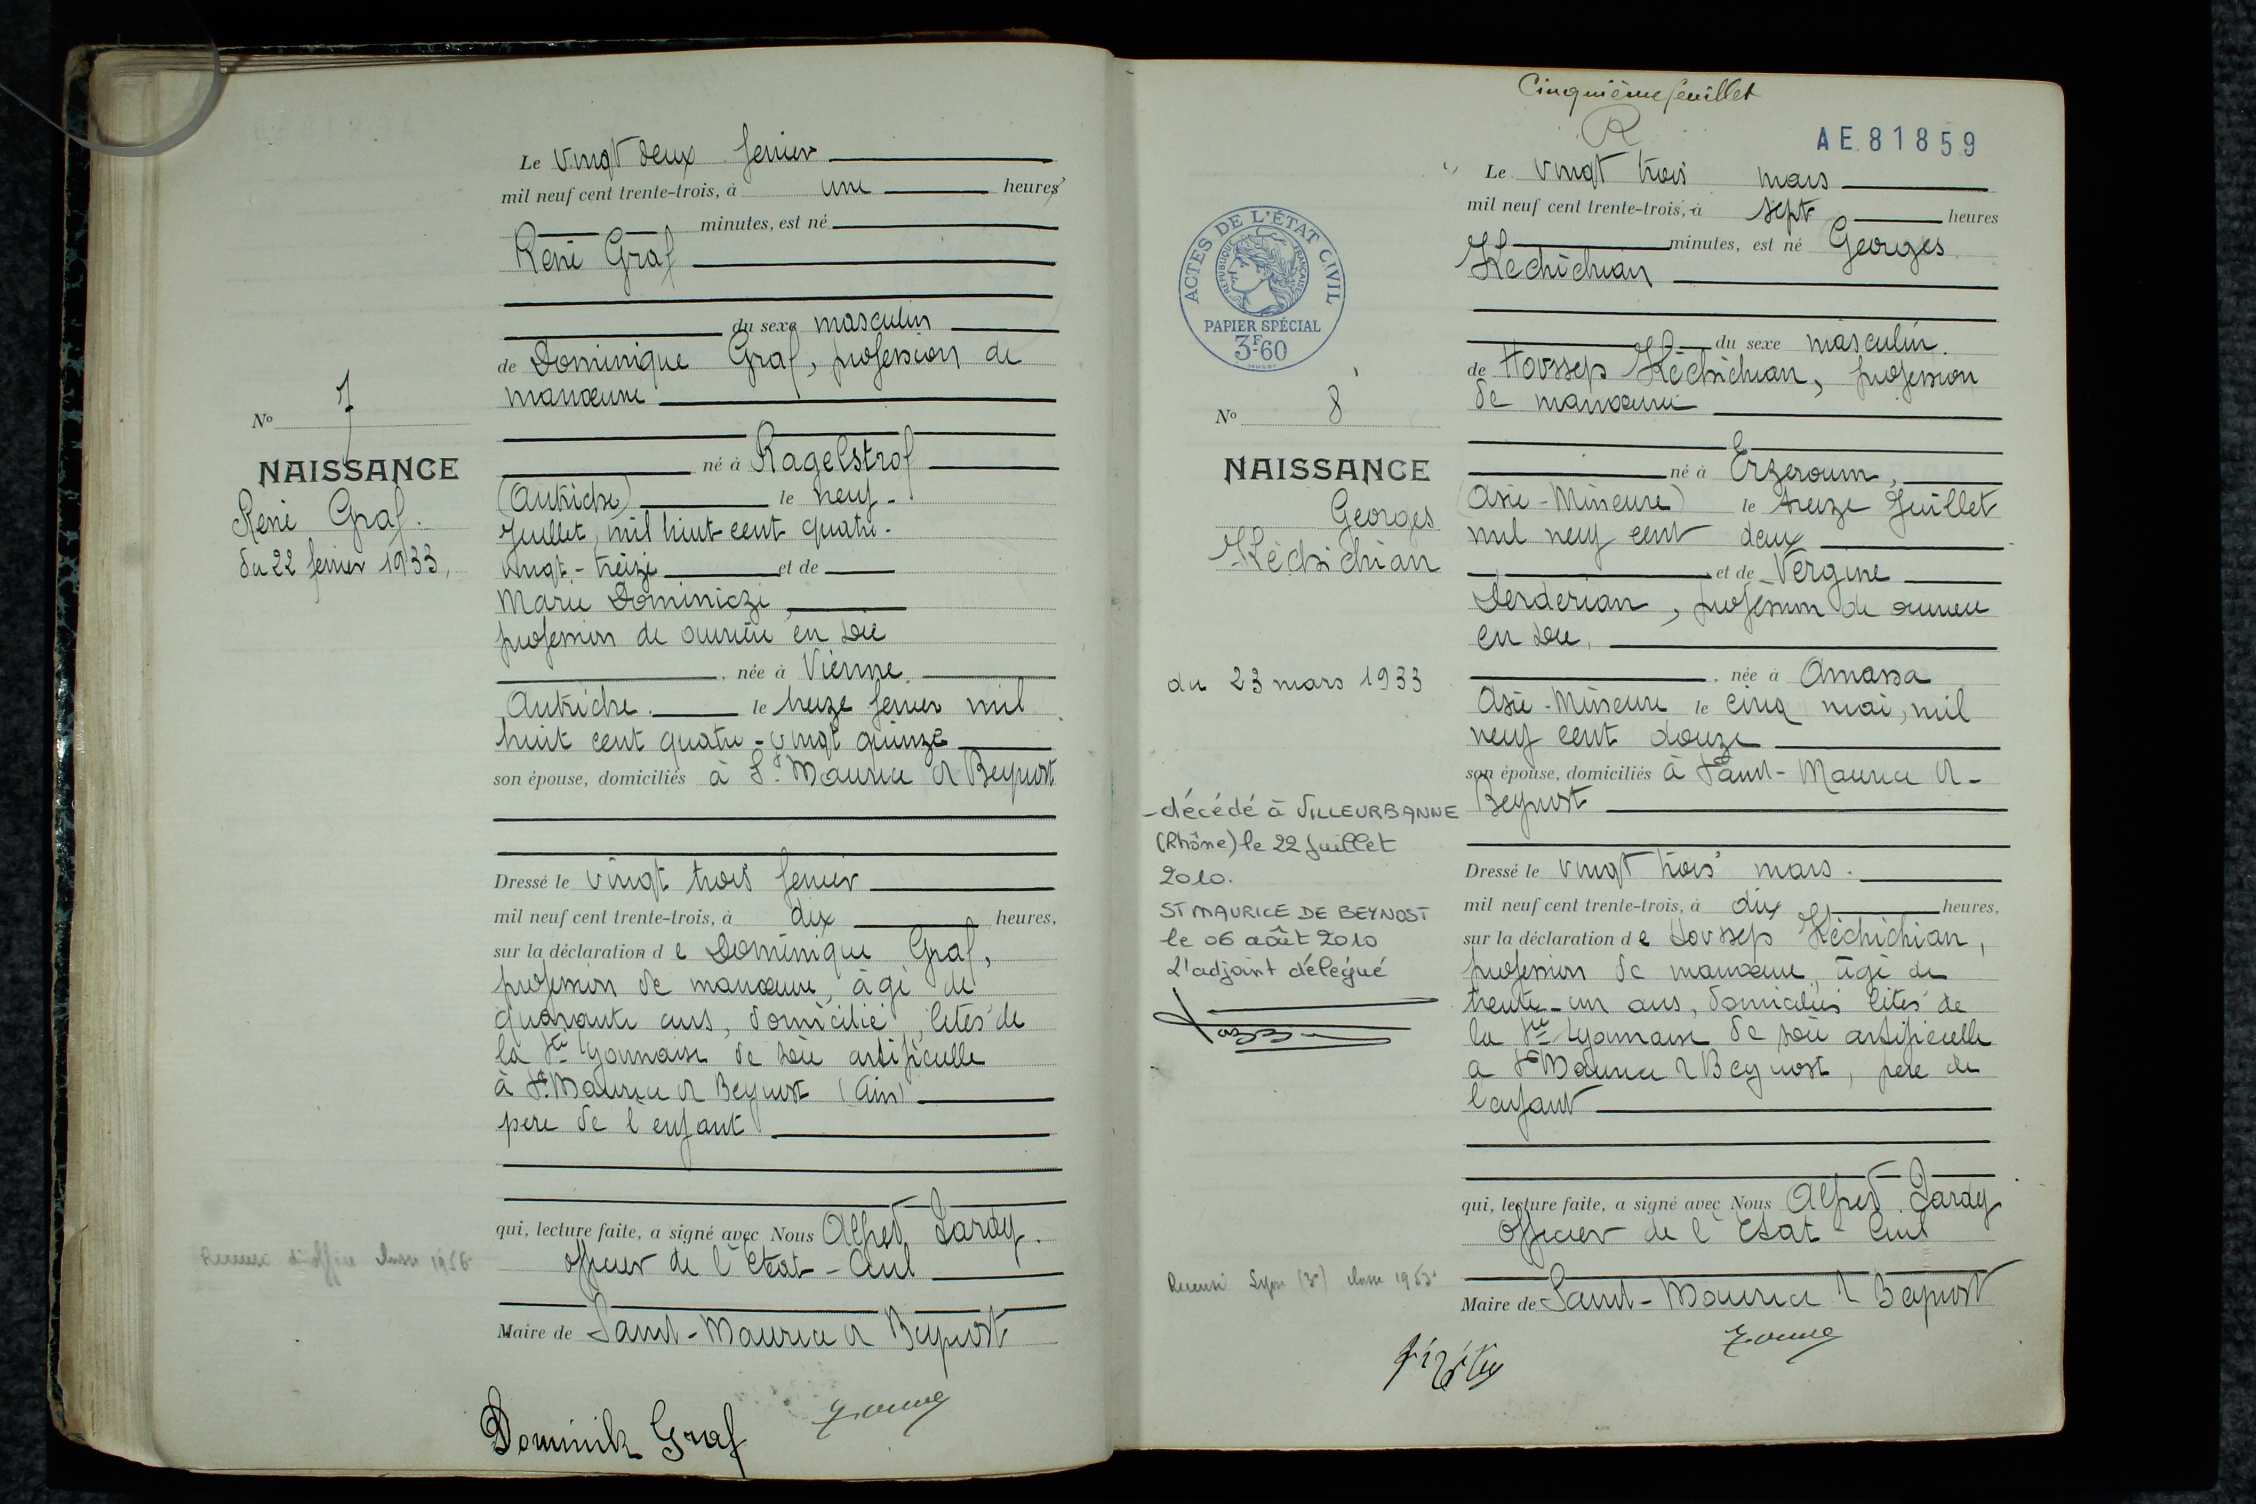 Le vingt deux fevrier
mil neuf cent trente-trois, à une heures
minutes, est né
René Graf
du sexe masculin
de Dominique Graf, profession de
manœuvre
né à Ragelstrof
(Autriche) le neuf
Juillet, mil huit cent quatre-
vingt-treize et de
Marie Dominiczi,
profession de ouvrière en soie
, née à Vienne,
Autriche. le treize fevrier mil
huit cent quatre-vingt quinze
son épouse, domiciliés à St Maurice de Beynost
Dressé le vingt trois fevrier
mil neuf cent trente-trois, à dix heures,
sur la déclaration de Dominique Graf,
profession de manœuvre, âgé de
quarante ans, domicilié, cités de
la Sté Lyonnaise de soie artificielle
à St Maurice de Beynost (Ain)
père de l'enfant
qui, lecture faite, a signé avec Nous Alfred Lardy.
officier de l'Etat-Civil
Maire de Saint-Maurice de Beynost
Dominik Graf
No 7
NAISSANCE
René Graf.
du 22 fevrier 1933,
Cinquième feuillet
R
AE.81859
Le vingt trois mars
mil neuf cent trente-trois, à sept heures
minutes, est né Georges
Kéchichian
du sexe masculin.
de Hovssep Kéchichian, profession
de manœuvre
né à Erzeroum,
(Asie-Mineure) le treize Juillet
mil neuf cent deux
et de Vergine
Derderian, profession de ouvrière
en soie,
, née à Amassa
Asie-Mineure le cinq mai, mil
neuf cent douze
son épouse, domiciliés à Saint-Maurice de-
Beynost
Dressé le vingt trois mars.
mil neuf cent trente-trois, à dix heures,
sur la déclaration de Hovssep Kéchichian,
profession de manœuvre, âgé de
trente-un ans, domiciliés cités de
la Sté Lyonnaise de soie artificielle
a St Maurice de Beynost, père de
l'enfant
qui, lecture faite, a signé avec Nous Alfred Lardy
officier de l'Etat-Civil
Maire de Saint-Maurice de Beynost
ACTES DE L'ÉTAT CIVIL
RÉPUBLIQUE FRANÇAISE
PAPIER SPÉCIAL
3F.60
No 8
NAISSANCE
Georges
Kéchichian
du 23 mars 1933
-décédé à VILLEURBANNE
(Rhône) le 22 juillet
2010.
ST MAURICE DE BEYNOST
le 06 août 2010
L'adjoint délégué
Recensé Lyon (3e) classe 1953